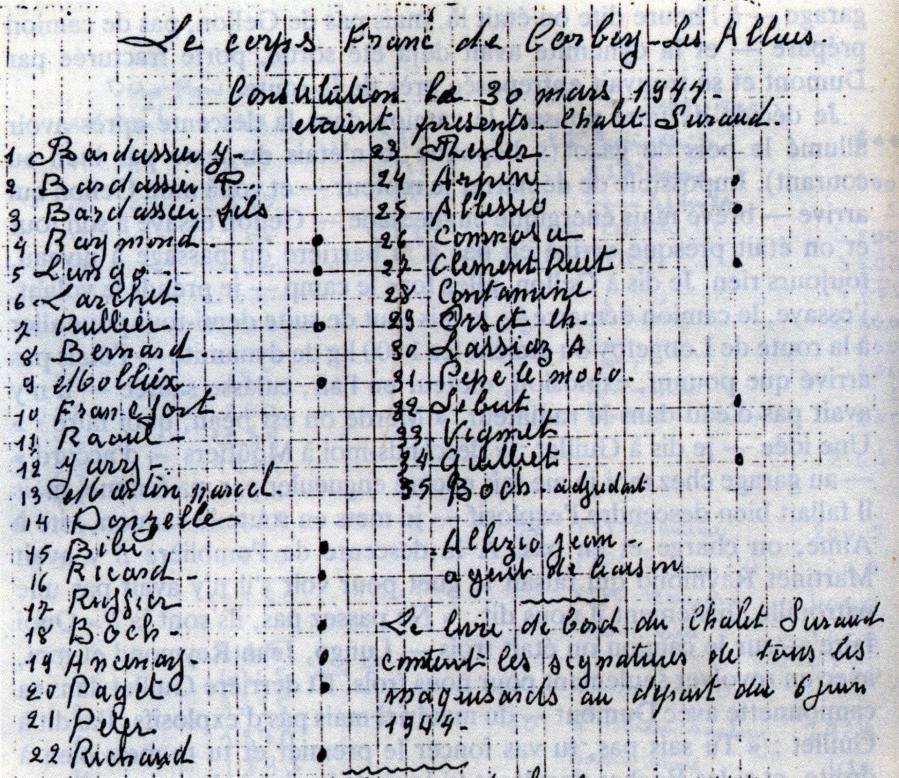 Le corps Franc de Corbey-Les Allues.
Constitution le 30 mars 1944-
etaient presents - Chalet Suraud-
1 Bardassier Y-
2 Bardassier P.
3 Bardassier fils
4 Raymond-
5 Lungo-
6 Larchet
7 Rullier
8 Bernard
9 Molliex
10 Francfort
11 Raoul-
12 Yurry-
13 Martin marcel
14 Donzelle
15 Bibi
16 Ricard-
17 Russier
18 Boch-
19 Ancenay-
20 Paget
21 Peter
22 Richand
23
24 Arpin
25 Allessio
26
27 Clement Ruet
28 Contamine
29 Orset Ch.
30 Lassiaz A
31 Pepe le moco
32 Sebat
33 Vignet
34 Guillet
35 Boch adjudat
Allezio jean-
agent de liaison
Le livre de bord du Chalet Suraud
contient les signatures de tous les
maquisards au départ du 6 juin
1944-